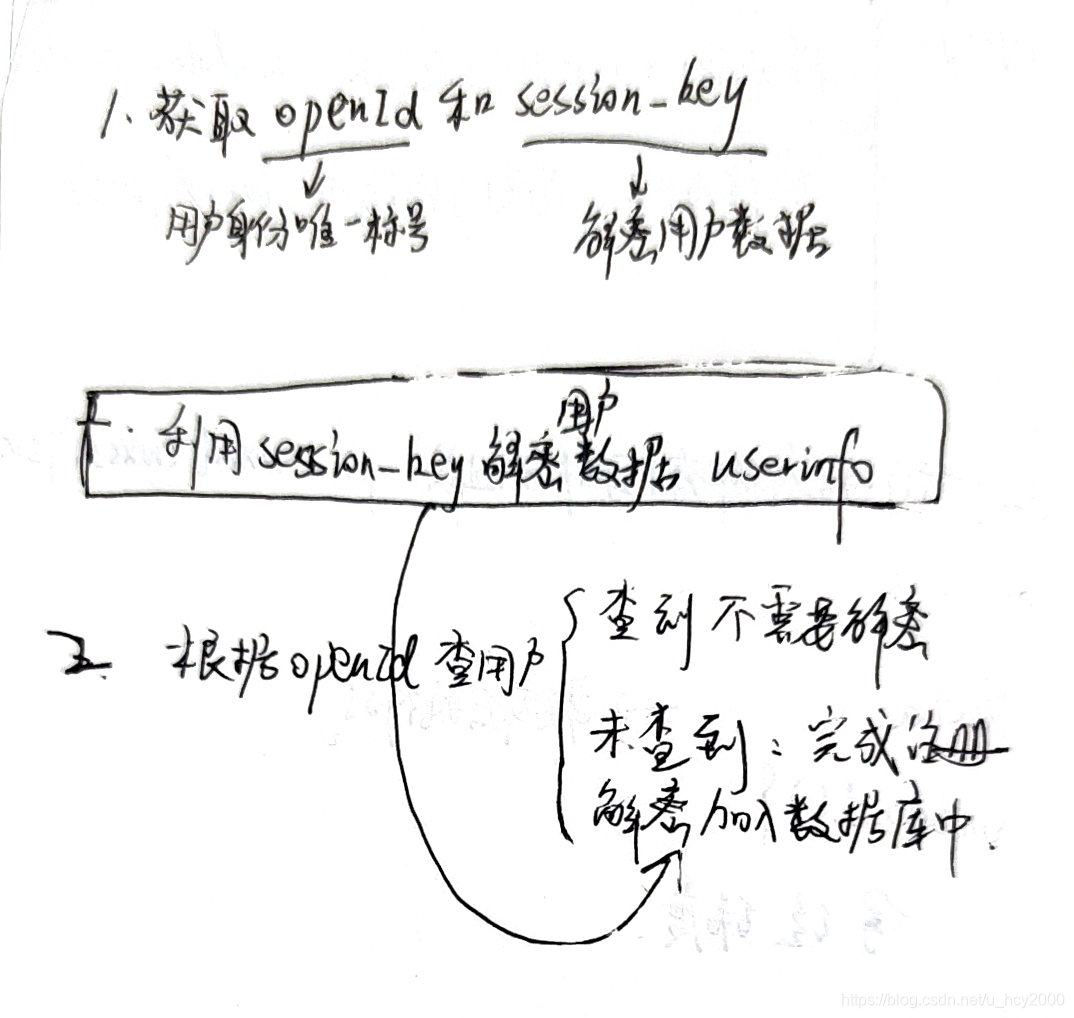 1. 获取 openId 和 session_key
用户身份唯一标号 解密用户数据
用户
利用 session_key 解密数据 userinfo
2. 根据openId 查用户
查到 不需要解密
未查到：完成注册
解密 加入数据库中.
https://blog.csdn.net/u_hcy2000